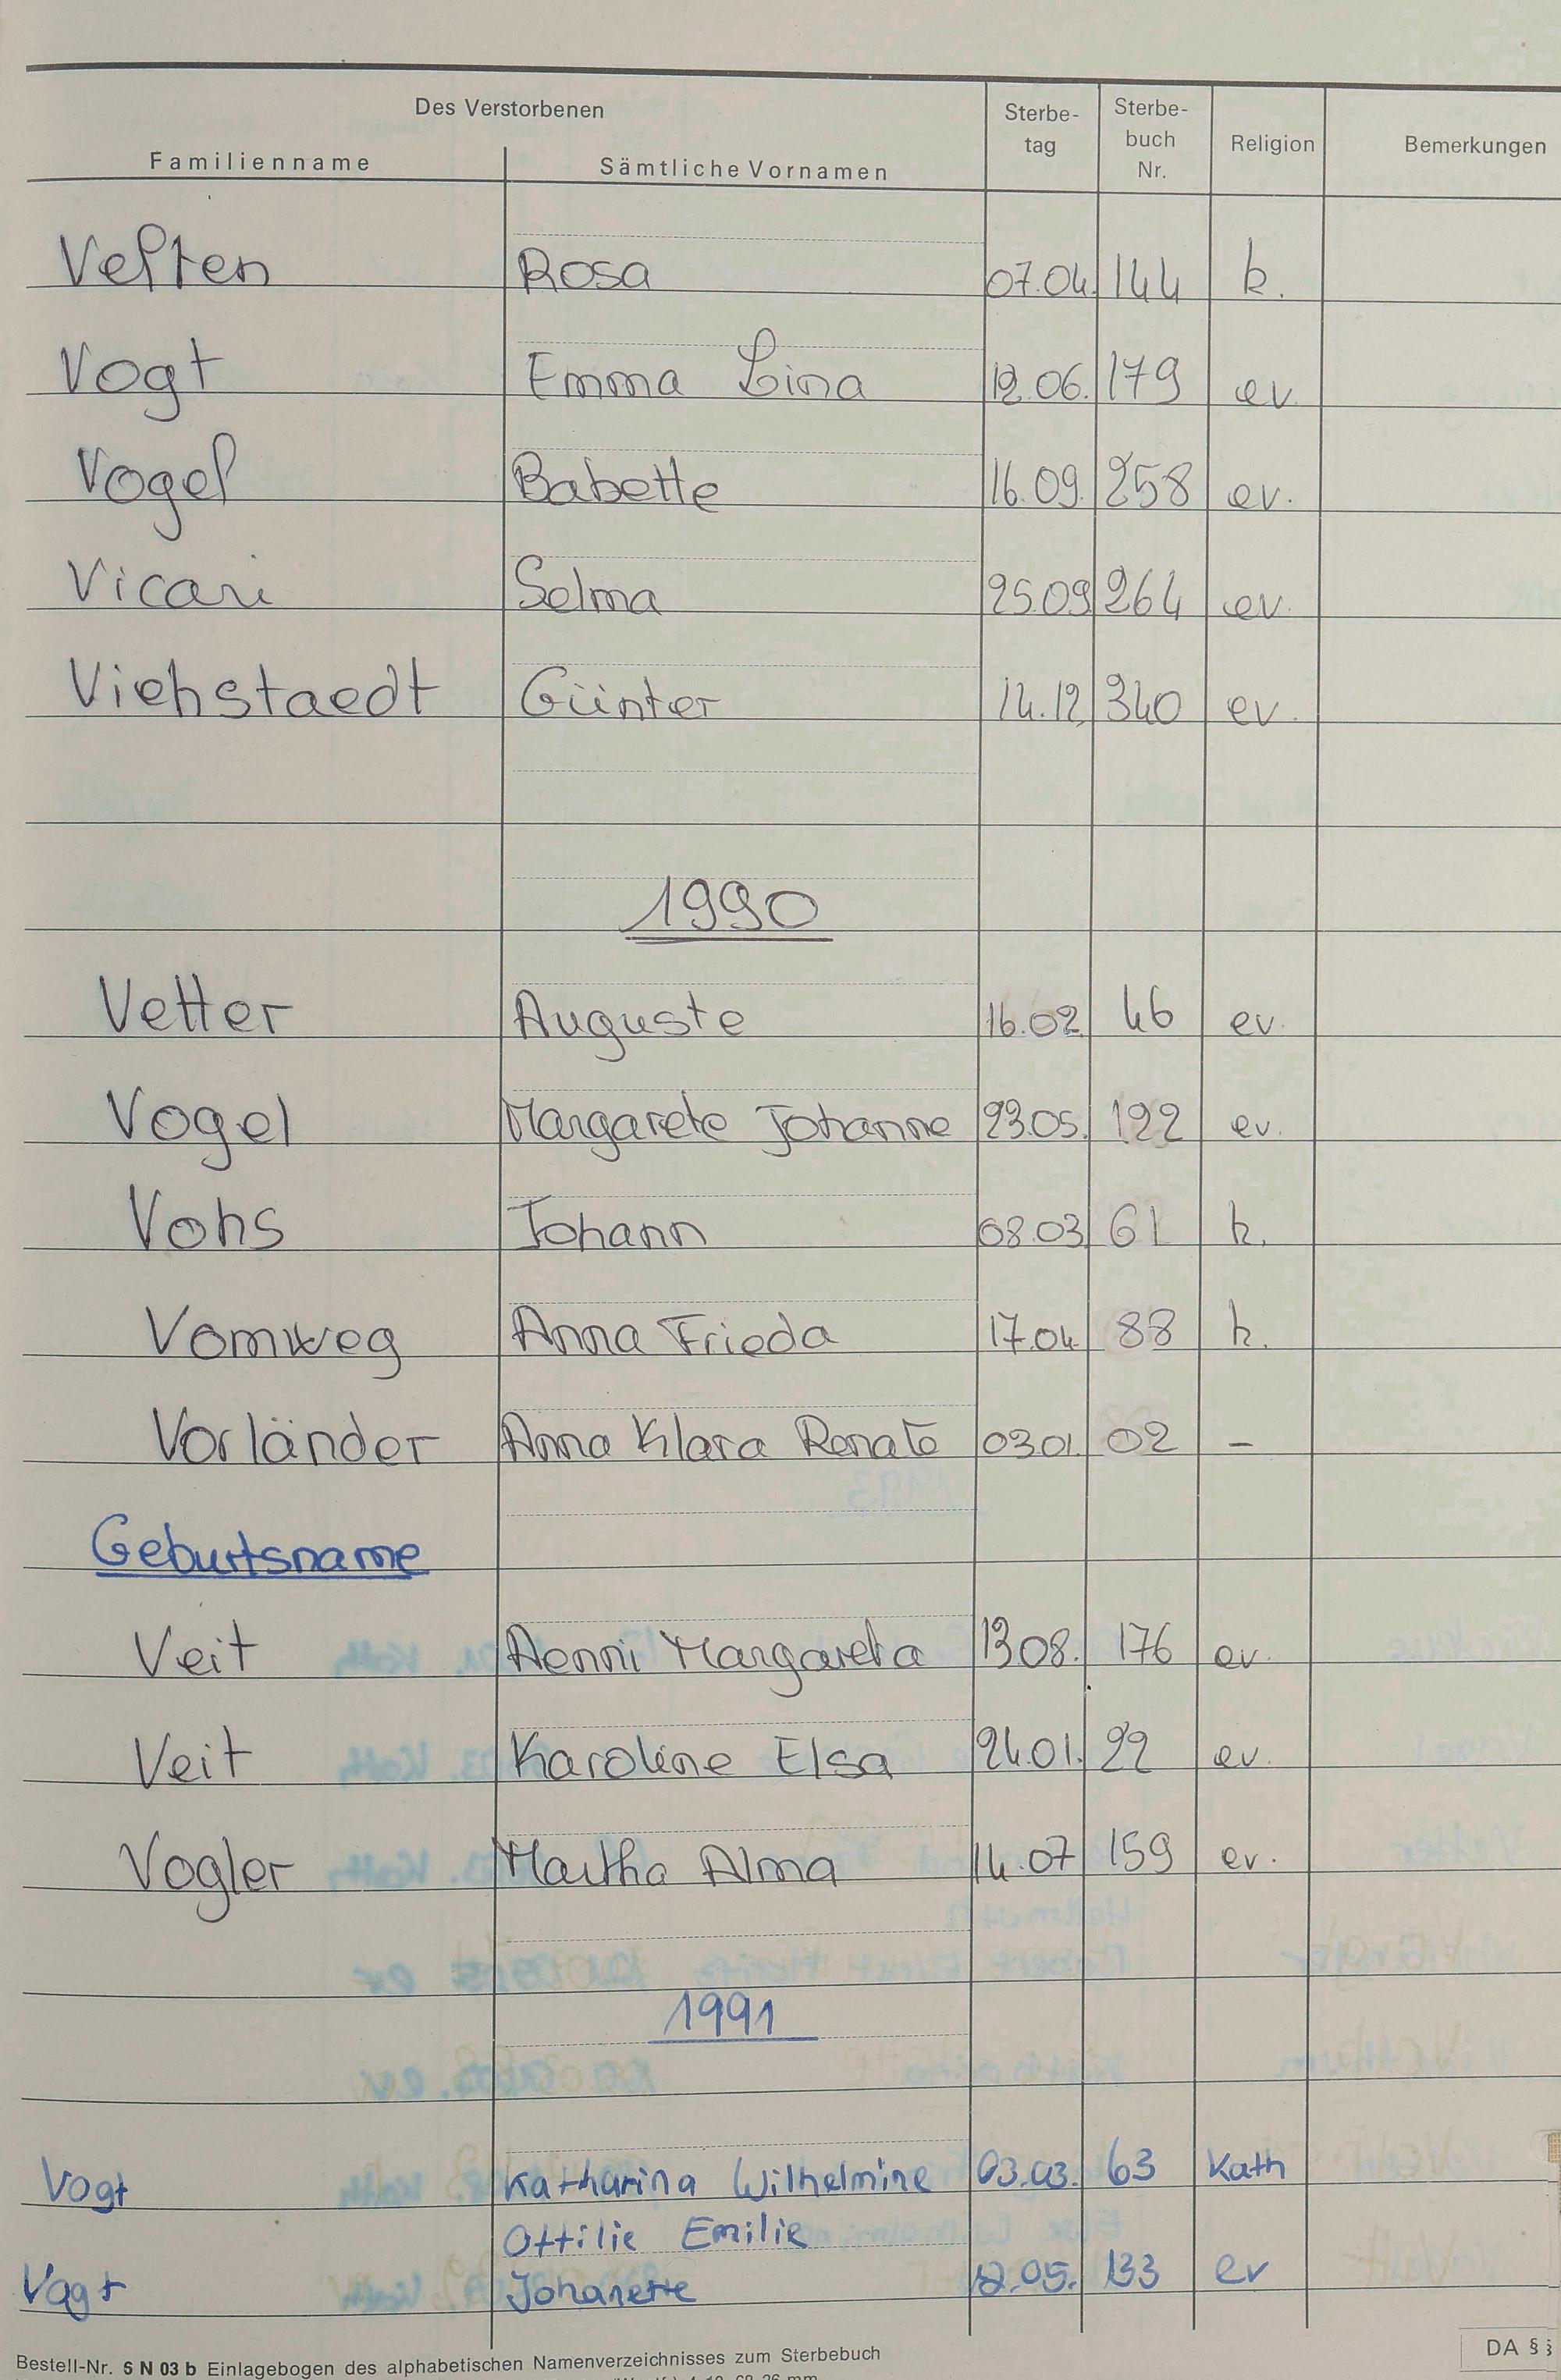 Des Verstorbenen
Familienname Sämtliche Vornamen Sterbe-tag Sterbe-buch Nr. Religion Bemerkungen
Velten Rosa 07.04. 144 k.
Vogt Emma Lina 12.06. 179 ev.
Vogel Babette 16.09. 258 ev.
Vicari Selma 25.09 264 ev.
Viehstaedt Günter 14.12. 340 ev.
1990
Vetter Auguste 16.02. 46 ev.
Vogel Margarete Johanne 23.05. 122 ev.
Vohs Johann 08.03. 61 k.
Vomweg Anna Frieda 17.04. 88 k.
Vorländer Anna Klara Renate 03.01. 02 –
Geburtsname
Veit Aenni Margareta 13.08. 176 ev.
Veit Karoline Elsa 24.01. 22 ev.
Vogler Martha Alma 14.07 159 ev.
1991
Vogt Katharina Wilhelmine 03.03. 63 Kath
Ottilie Emilie
Vogt Johanette 12.05. 133 ev
Bestell-Nr. 5 N 03 b Einlagebogen des alphabetischen Namenverzeichnisses zum Sterbebuch
DA §